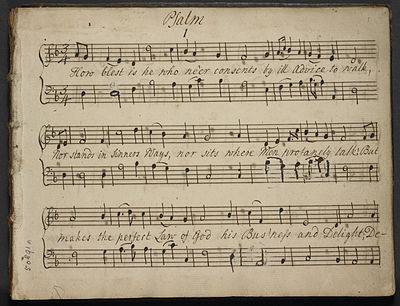 Psalm
1
How blest is he who ne'er consents by ill Advice to walk,
Nor stands in Sinners Ways, nor sits where Men profanely talk: But
makes the perfect Law of God his Bus'ness and Delight; De-